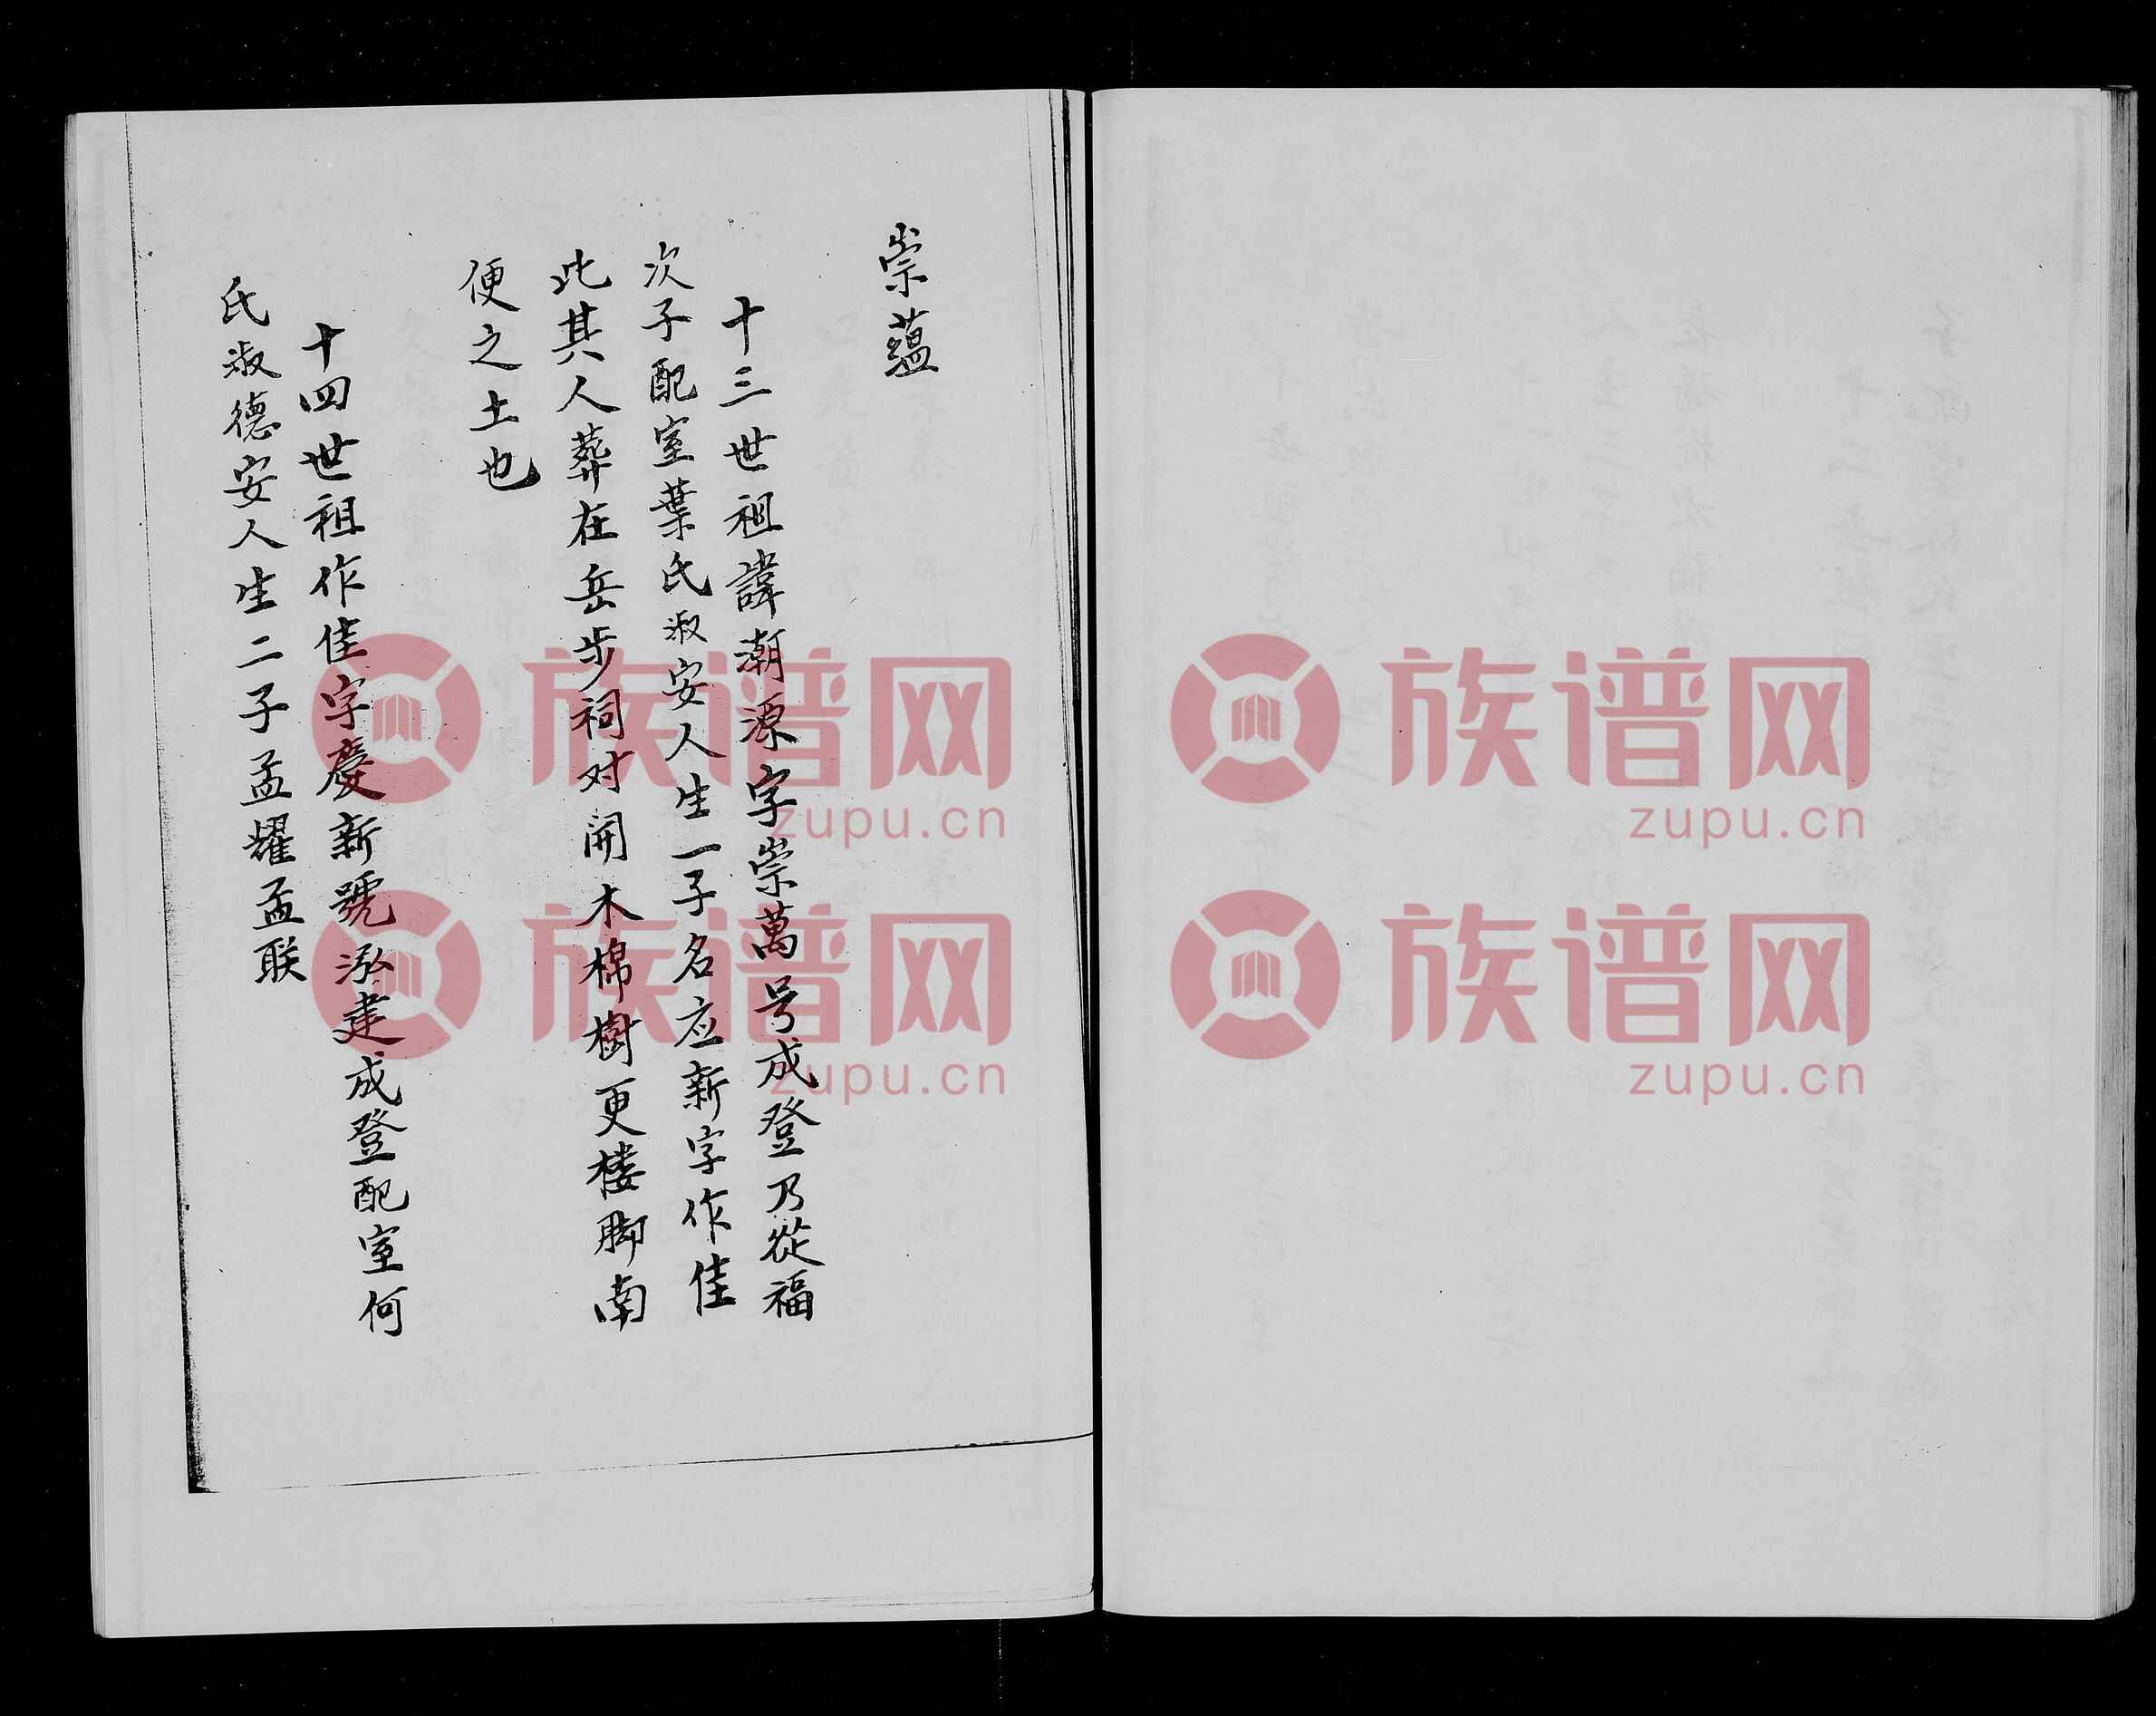 崇蘊
十三世祖諱潮源字崇萬号成登乃從福
次子配室葉氏淑安人生一子名应新字作佳
此其人葬在岳步祠对開木棉樹更楼脚南
便之土也
十四世祖作佳字慶新號泓建成登配室何
氏淑德安人生二子孟耀孟联
族谱网
zupu.cn
族谱网
zupu.cn
族谱网
zupu.cn
族谱网
zupu.cn